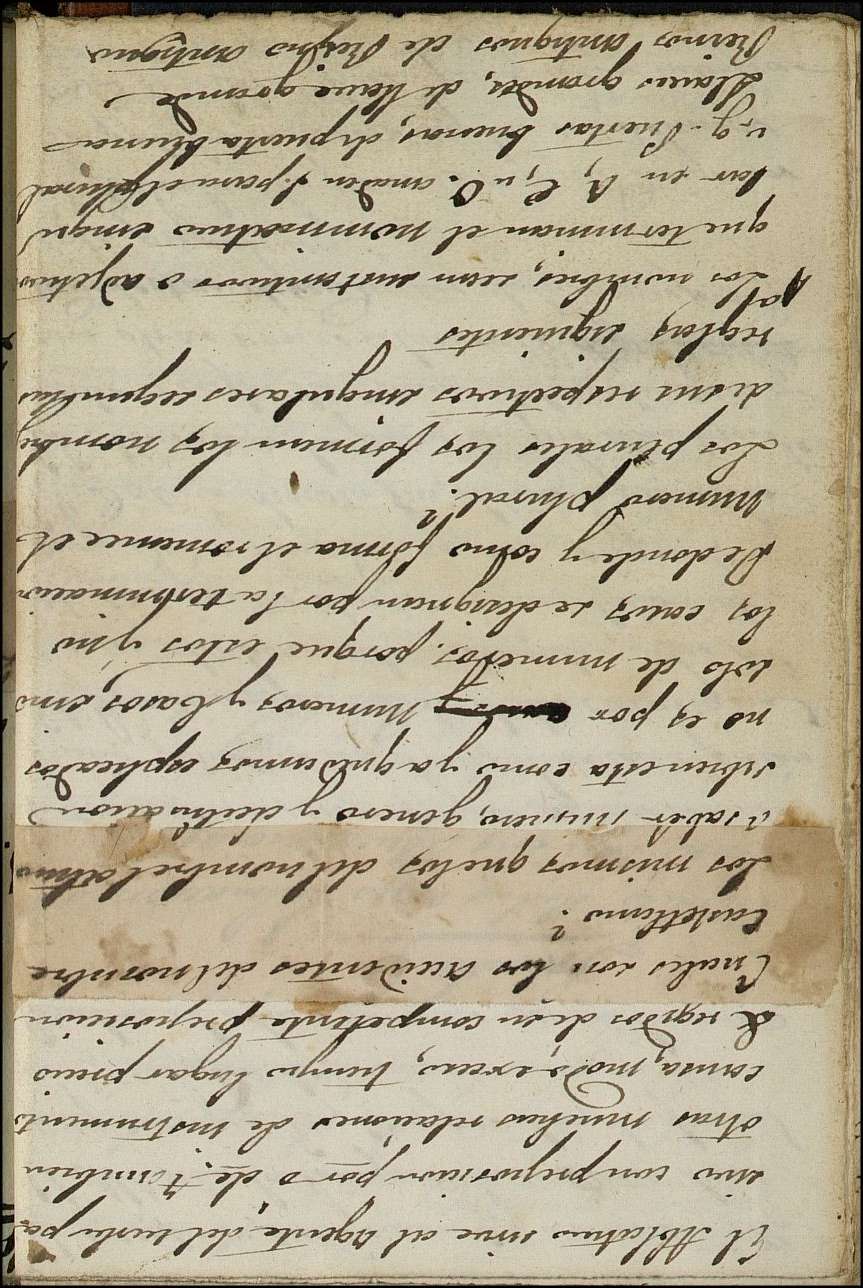 El Ablativo sirve al agente, del verbo pa
sivo con preposicion por o de. tambien
otras muchas relaciones de instrumento
causa, modo, exceso, tiempo lugar precio
& regidos de su competente preposicion
Cuales son los accidentes del nombre
Castellano?
Los mismos que los del nombre latino
a saber numero, genero y declinacion
si bien esta como ya quedamos esplicados
no es por numeros y Casos, sino
solo de numeros; porque estos y no
los casos se designan por la terminacion
De donde y como forma el romance el
numero plural?
Los plurales los forman los nombres
de sus respectivos singulares segun las
reglas siguientes
1ª Los nombres, sean sustantivos o adjetivos
que terminan el nominativo singu
lar en A, E, u O. anaden s. para el plural
v. g. Puertas buenas, de puerta buena
Llaves grandes, de llave grande
Reinos antiguos de Reyno antiguo